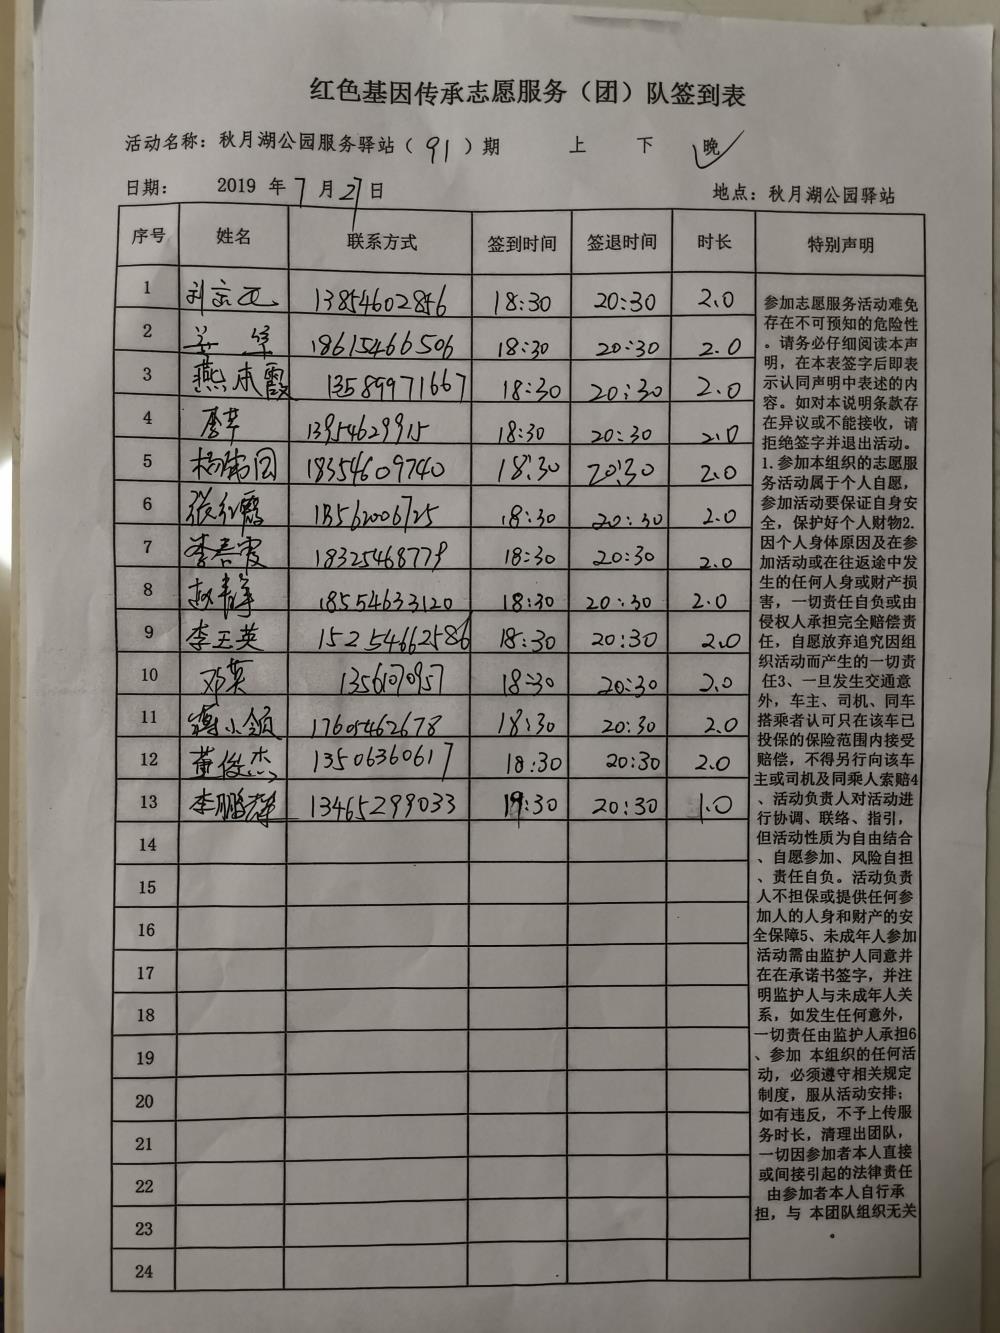 红色基因传承志愿服务（团）队签到表
活动名称：秋月湖公园服务驿站（91）期 上 下 晚✓
日期： 2019 年 7 月 27 日 地点：秋月湖公园驿站
序号 姓名 联系方式 签到时间 签退时间 时长 特别声明
1 13854602856 18:30 20:30 2.0
2 18615466506 18:30 20:30 2.0
3 燕本霞 13589971667 18:30 20:30 2.0
4 唐苹 13954629915 18:30 20:30 2.0
5 18354609740 18:30 20:30 2.0
6 张红霞 13562006725 18:30 20:30 2.0
7 李春霞 18325468779 18:30 20:30 2.0
8 赵春萍 18554633120 18:30 20:30 2.0
9 李玉英 152254662586 18:30 20:30 2.0
10 邓英 13561070957 18:30 20:30 2.0
11 17605462678 18:30 20:30 2.0
12 董俊杰 13506360617 18:30 20:30 2.0
13 李鹏群 13465299033 19:30 20:30 1.0
14
15
16
17
18
19
20
21
22
23
24
参加志愿服务活动难免
存在不可预知的危险性
。请务必仔细阅读本声
明，在本表签字后即表
示认同声明中表述的内
容。如对本说明条款存
在异议或不能接收，请
拒绝签字并退出活动。
1.参加本组织的志愿服
务活动属于个人自愿，
参加活动要保证自身安
全，保护好个人财物2.
因个人身体原因及在参
加活动或在往返途中发
生的任何人身或财产损
害，一切责任自负或由
侵权人承担完全赔偿责
任，自愿放弃追究因组
织活动而产生的一切责
任3、一旦发生交通意
外，车主、司机、同车
搭乘者认可只在该车已
投保的保险范围内接受
赔偿，不得另行向该车
主或司机及同乘人索赔4
、活动负责人对活动进
行协调、联络、指引，
但活动性质为自由结合
、自愿参加、风险自担
、责任自负。活动负责
人不担保或提供任何参
加人的人身和财产的安
全保障5、未成年人参加
活动需由监护人同意并
在在承诺书签字，并注
明监护人与未成年人关
系，如发生任何意外，
一切责任由监护人承担6
、参加 本组织的任何活
动，必须遵守相关规定
制度，服从活动安排；
如有违反，不予上传服
务时长，清理出团队，
一切因参加者本人直接
或间接引起的法律责任
由参加者本人自行承
担，与 本团队组织无关
。